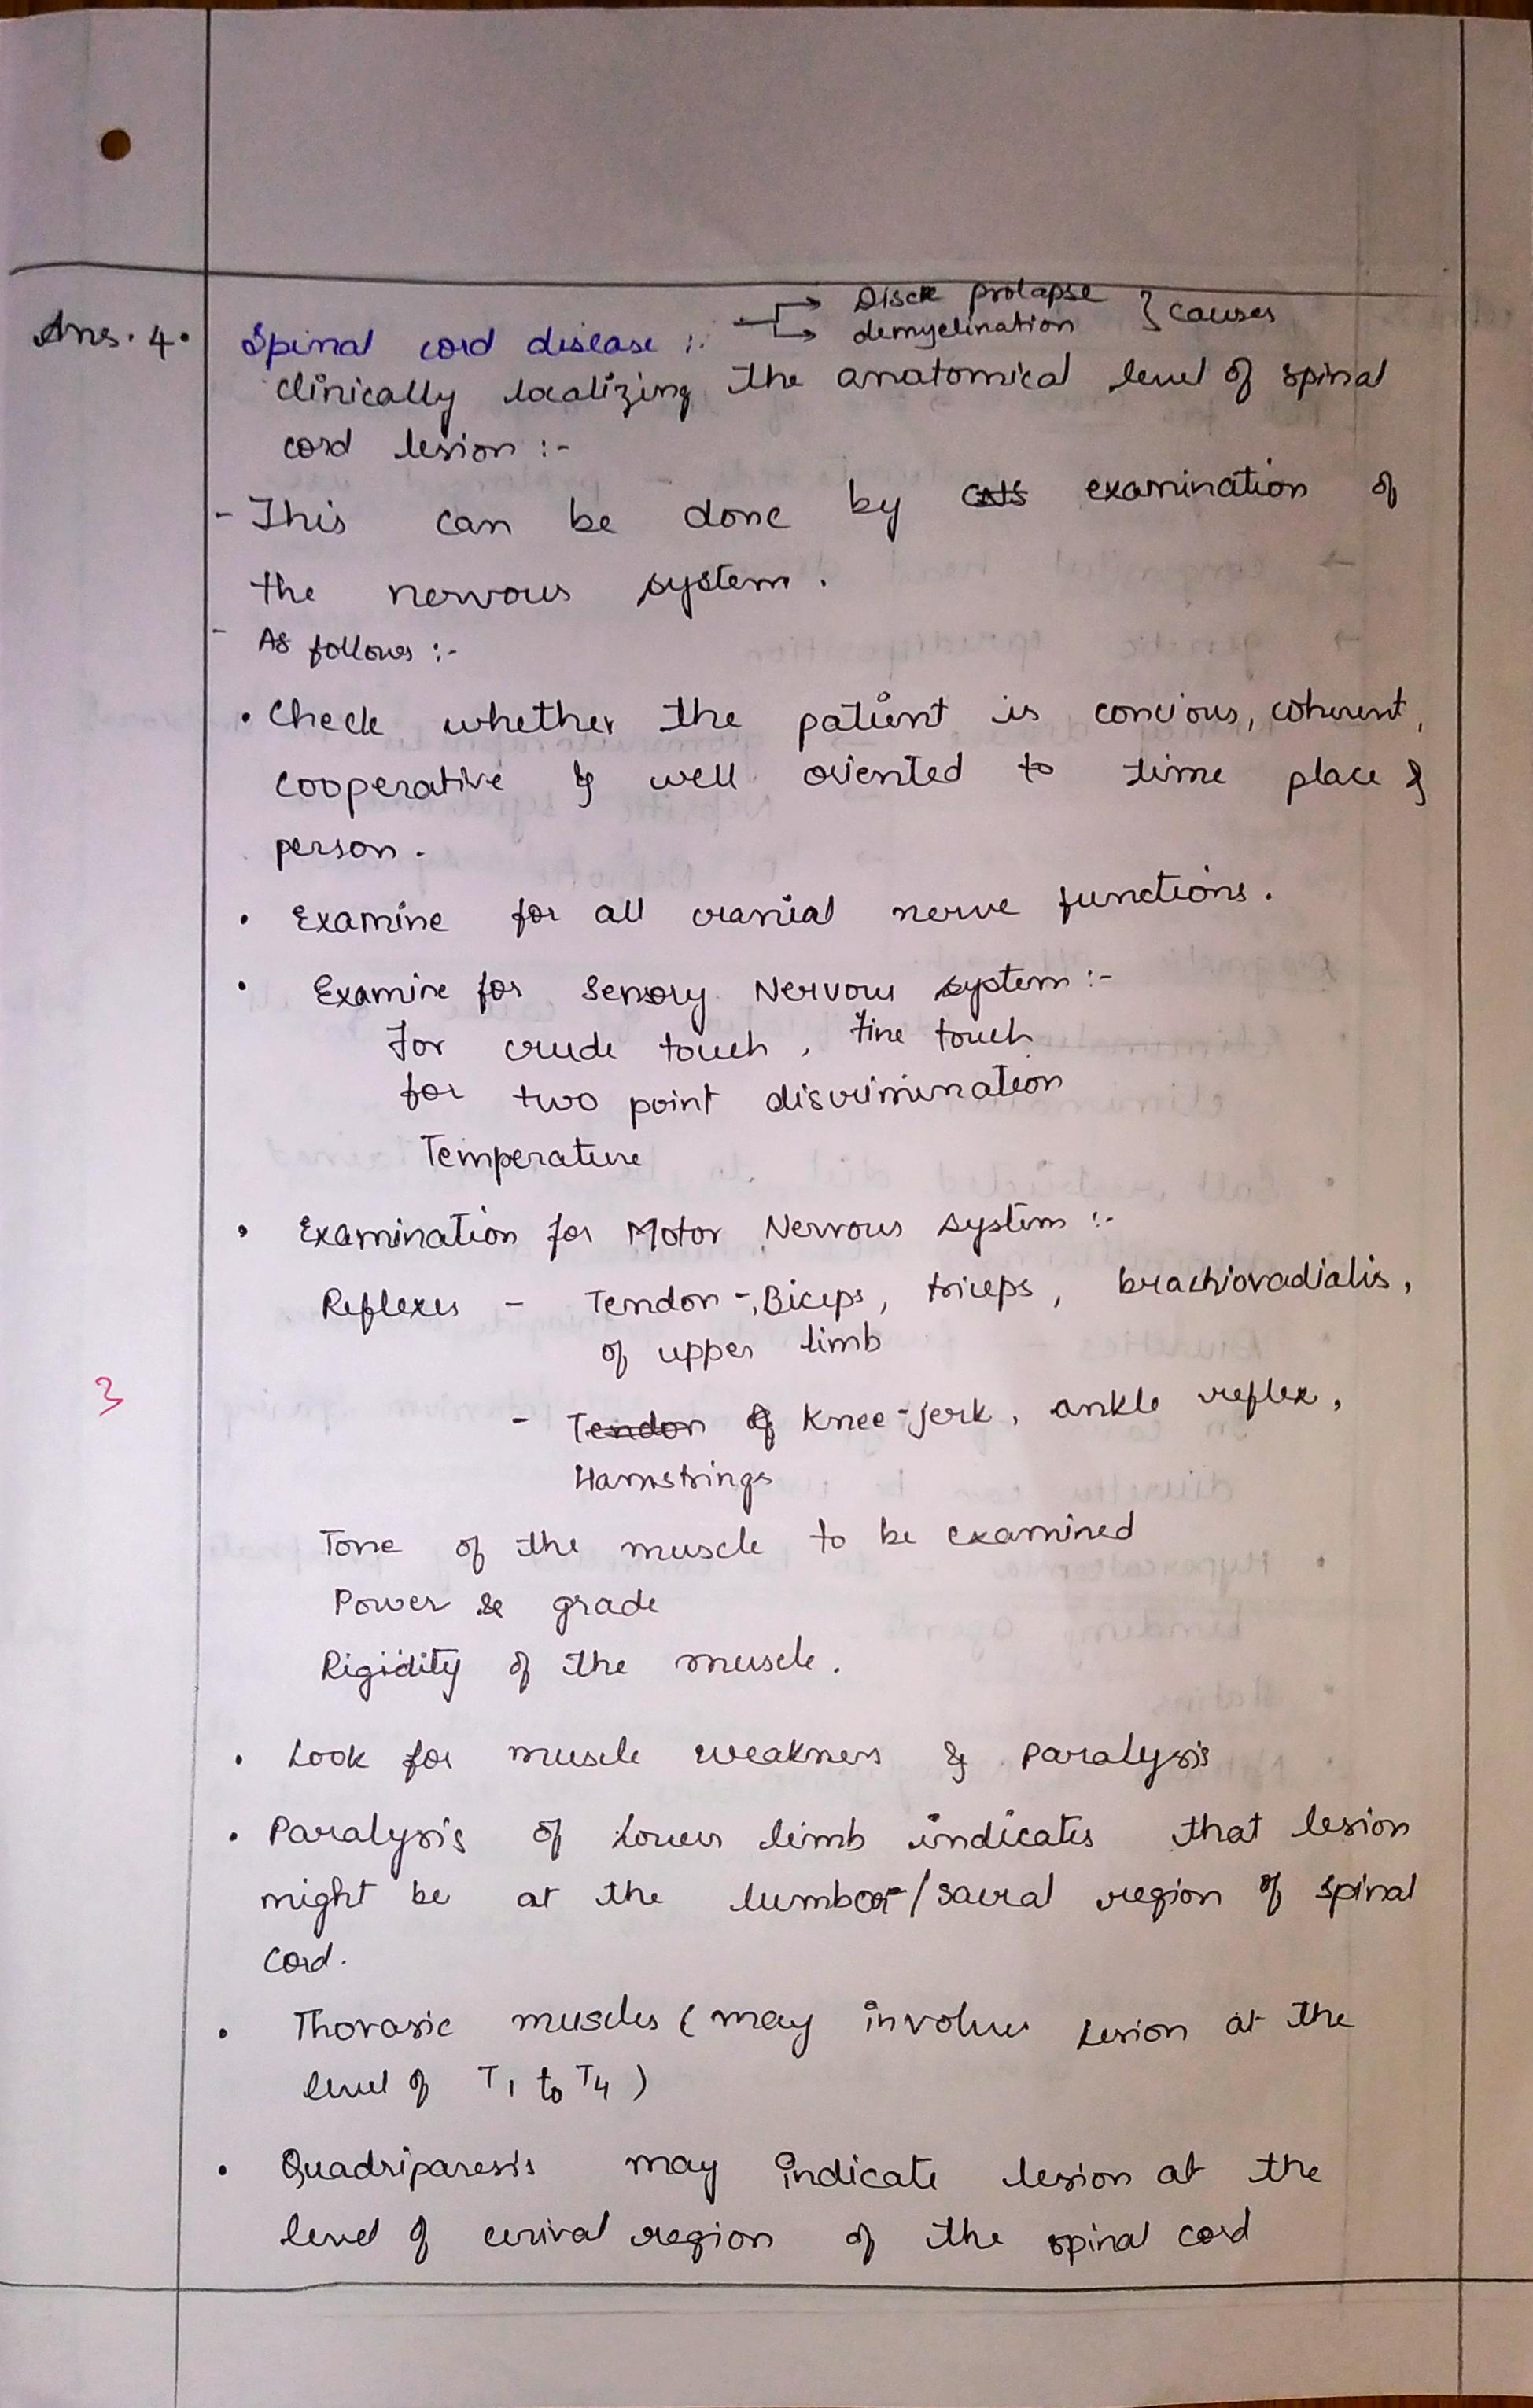 Ans. 4.
Spinal cord disease :- → Disc prolapse } causes
→ demyelination
Clinically localizing the anatomical level of spinal
cord lesion :-
- This can be done by CNS examination of
the nervous system.
- As follows :-
• Check whether the patient is concious, coherent,
cooperative & well oriented to time place &
person.
• Examine for all cranial nerve functions.
• Examine for Sensory Nervous system :-
For crude touch, Fine touch
for two point discrimination
Temperature
• Examination for Motor Nervous system :-
Reflexes - Tendon -, Biceps, triceps, brachioradialis,
of upper limb
3
- Tendon of Knee-jerk, ankle reflex,
Hamstrings
Tone of the muscle to be examined
Power & grade
Rigidity of the muscle.
• Look for muscle weakness & Paralysis
• Paralysis of Lower limb indicates that lesion
might be at the lumbar/sacral region of spinal
cord.
• Thorasic muscles (may involves Lesion at the
level of T1 to T4)
• Quadriparesis may indicate lesion at the
level of cerival region of the spinal cord